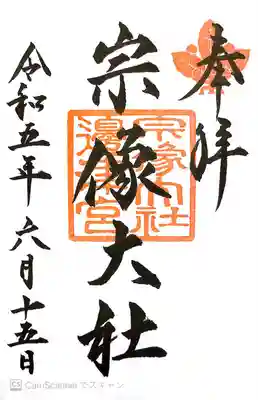 奉拝
宗像大社
宗像大社
邊津宮
令和五年六月十五日
CS CamScanner でスキャン